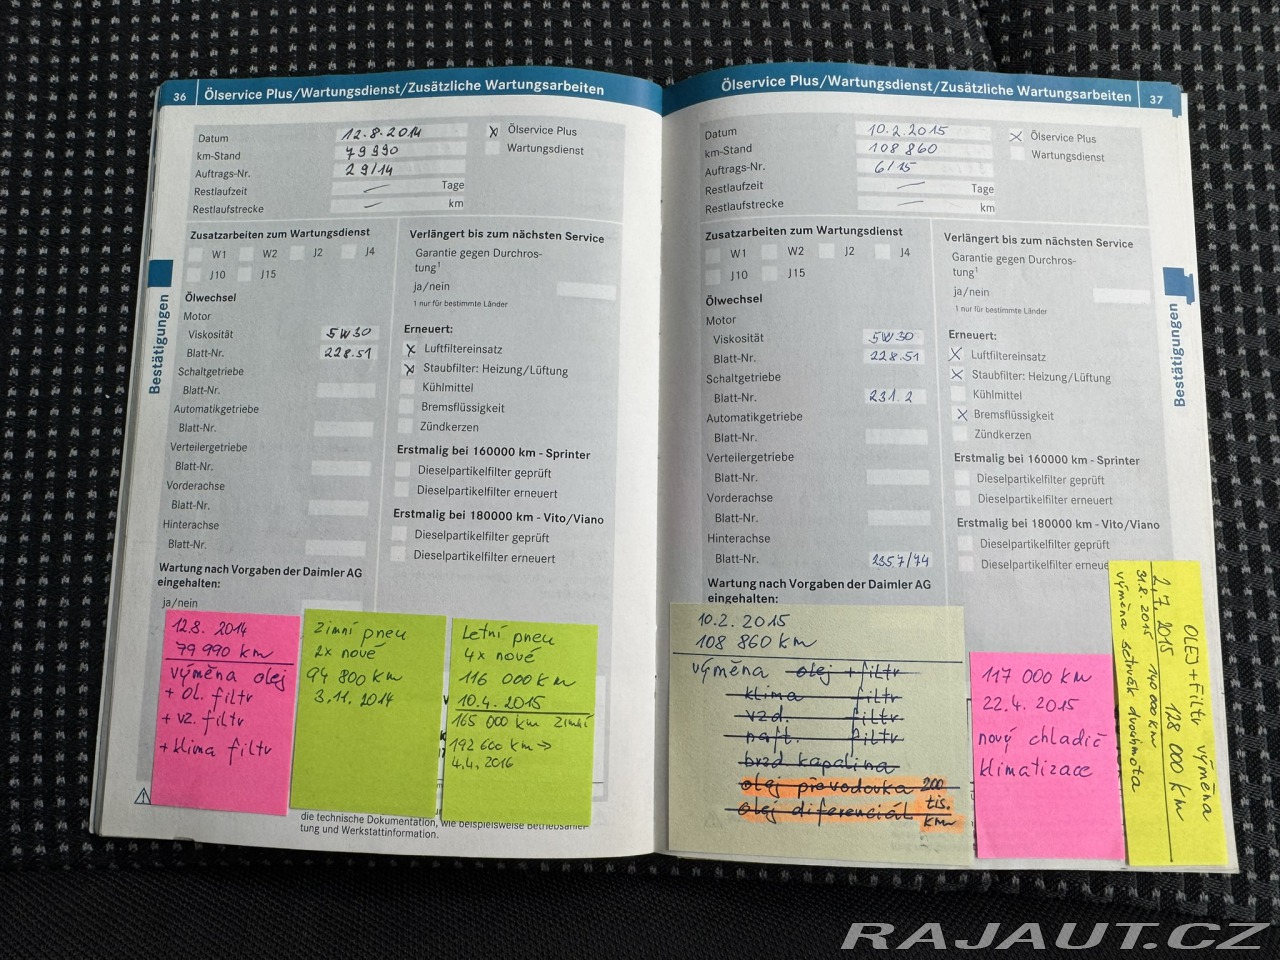 36 Ölservice Plus/Wartungsdienst/Zusätzliche Wartungsarbeiten
Datum 12.8.2014
km-Stand 79990
Auftrags-Nr. 29/14
Restlaufzeit — Tage
Restlaufstrecke — km
x Ölservice Plus
Wartungsdienst
Zusatzarbeiten zum Wartungsdienst
W1 W2 J2 J4
J10 J15
Ölwechsel
Motor
Viskosität 5W30
Blatt-Nr. 228.51
Schaltgetriebe
Blatt-Nr.
Automatikgetriebe
Blatt-Nr.
Verteilergetriebe
Blatt-Nr.
Vorderachse
Blatt-Nr.
Hinterachse
Blatt-Nr.
Wartung nach Vorgaben der Daimler AG
eingehalten:
ja/nein
Verlängert bis zum nächsten Service
Garantie gegen Durchros-
tung¹
ja/nein
1 nur für bestimmte Länder
Erneuert:
x Luftfiltereinsatz
x Staubfilter: Heizung/Lüftung
Kühlmittel
Bremsflüssigkeit
Zündkerzen
Erstmalig bei 160000 km - Sprinter
Dieselpartikelfilter geprüft
Dieselpartikelfilter erneuert
Erstmalig bei 180000 km - Vito/Viano
Dieselpartikelfilter geprüft
Dieselpartikelfilter erneuert
Bestätigungen
12.8. 2014
79 990 km
výměna olej
+ ol. filtr
+ vz. filtr
+ klima filtr
Zimní pneu
2x nové
94 800 km
3.11.2014
Letní pneu
4x nové
116 000 km
10.4.2015
165 000 km zimní
192 600 km →
4.4.2016
die technische Dokumentation, wie beispielsweise Betriebsanlei-
tung und Werkstattinformation.
Ölservice Plus/Wartungsdienst/Zusätzliche Wartungsarbeiten 37
Datum 10.2.2015
km-Stand 108 860
Auftrags-Nr. 6/15
Restlaufzeit — Tage
Restlaufstrecke — km
x Ölservice Plus
Wartungsdienst
Zusatzarbeiten zum Wartungsdienst
W1 W2 J2 J4
J10 J15
Ölwechsel
Motor
Viskosität 5W30
Blatt-Nr. 228.51
Schaltgetriebe
Blatt-Nr. 231.2
Automatikgetriebe
Blatt-Nr.
Verteilergetriebe
Blatt-Nr.
Vorderachse
Blatt-Nr.
Hinterachse
Blatt-Nr. 235.7/74
Wartung nach Vorgaben der Daimler AG
eingehalten:
Verlängert bis zum nächsten Service
Garantie gegen Durchros-
tung¹
ja/nein
1 nur für bestimmte Länder
Erneuert:
x Luftfiltereinsatz
x Staubfilter: Heizung/Lüftung
Kühlmittel
x Bremsflüssigkeit
Zündkerzen
Erstmalig bei 160000 km - Sprinter
Dieselpartikelfilter geprüft
Dieselpartikelfilter erneuert
Erstmalig bei 180000 km - Vito/Viano
Dieselpartikelfilter geprüft
Dieselpartikelfilter erneue
Bestätigungen
10.2. 2015
108 860 km
výměna olej + filtr
klima filtr
vzd. filtr
naft. filtr
brzd kapalina
olej převodovka 200
olej diferenciál tis.
km
117 000 km
22.4. 2015
nový chladič
klimatizace
OLEJ + Filtr výměna
2.7.2015 128 000 km
31.8.2015 140 000 km
výměna setrvák dvouhmota
RAJAUT.CZ